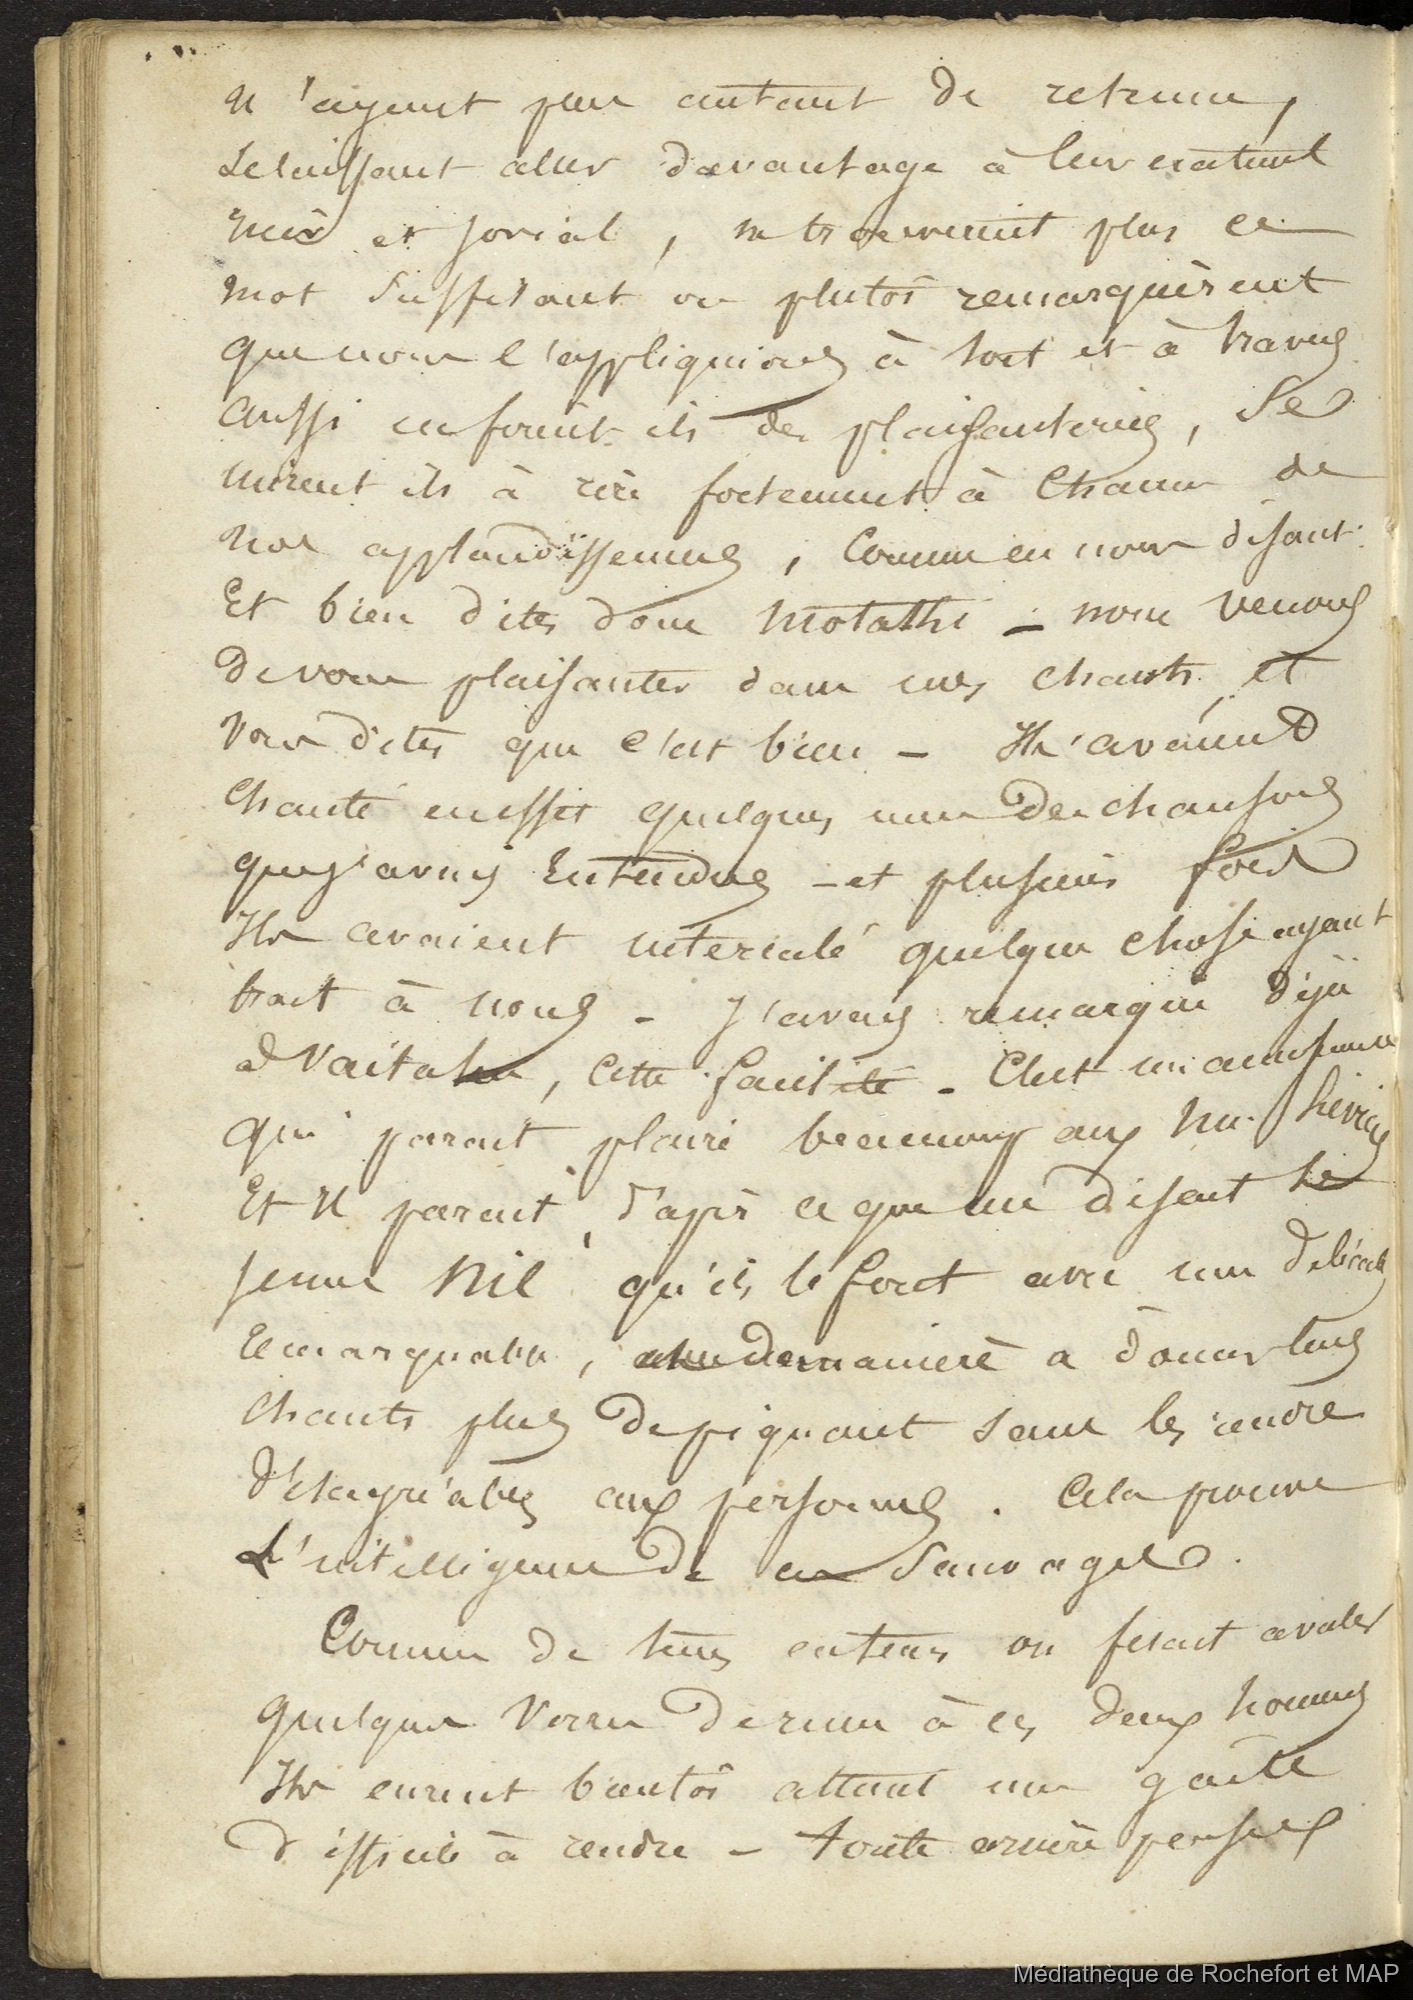 n'ayant plus autant de retenue,
se laissant aller davantage à leur naturel
et jovial, ne trouvèrent plus ce
mot suffisant ou plutôt remarquèrent
que nous l'appliquions à tort et à travers
aussi en firent ils des plaisanteries, Se
mirent ils à rire fortement à chacun de
nos applaudissemens, comme en nous disant.
Et bien dites donc motakhi – nous venons
de vous plaisanter dans nos chants et
vous dites que c'est bien – Ils avaient
chanté en effet quelques unes des chansons
que j'avais entendues – et plusieurs fois
Ils avaient intercalé quelque chose ayant
trait à nous – J'avais remarqué déjà
à Vaitahu, cette facilité – C'est un amusement
qui parait plaire beaucoup aux
Et il parait, d'après ce que me disent le
jeune Nil qu'ils le font avec une
remarquable, de manière à donner leurs
chants plus de piquant sans les rendre
désagréables aux personnes. Cela prouve
L'intelligence de ces Sauvages.
Comme de tems en tems on fesait avaler
quelques verres de rum à ces deux hommes
Ils eurent bientôt atteint une gaité
difficile à rendre – toute arrière pensée
Médiathèque de Rochefort et MAP